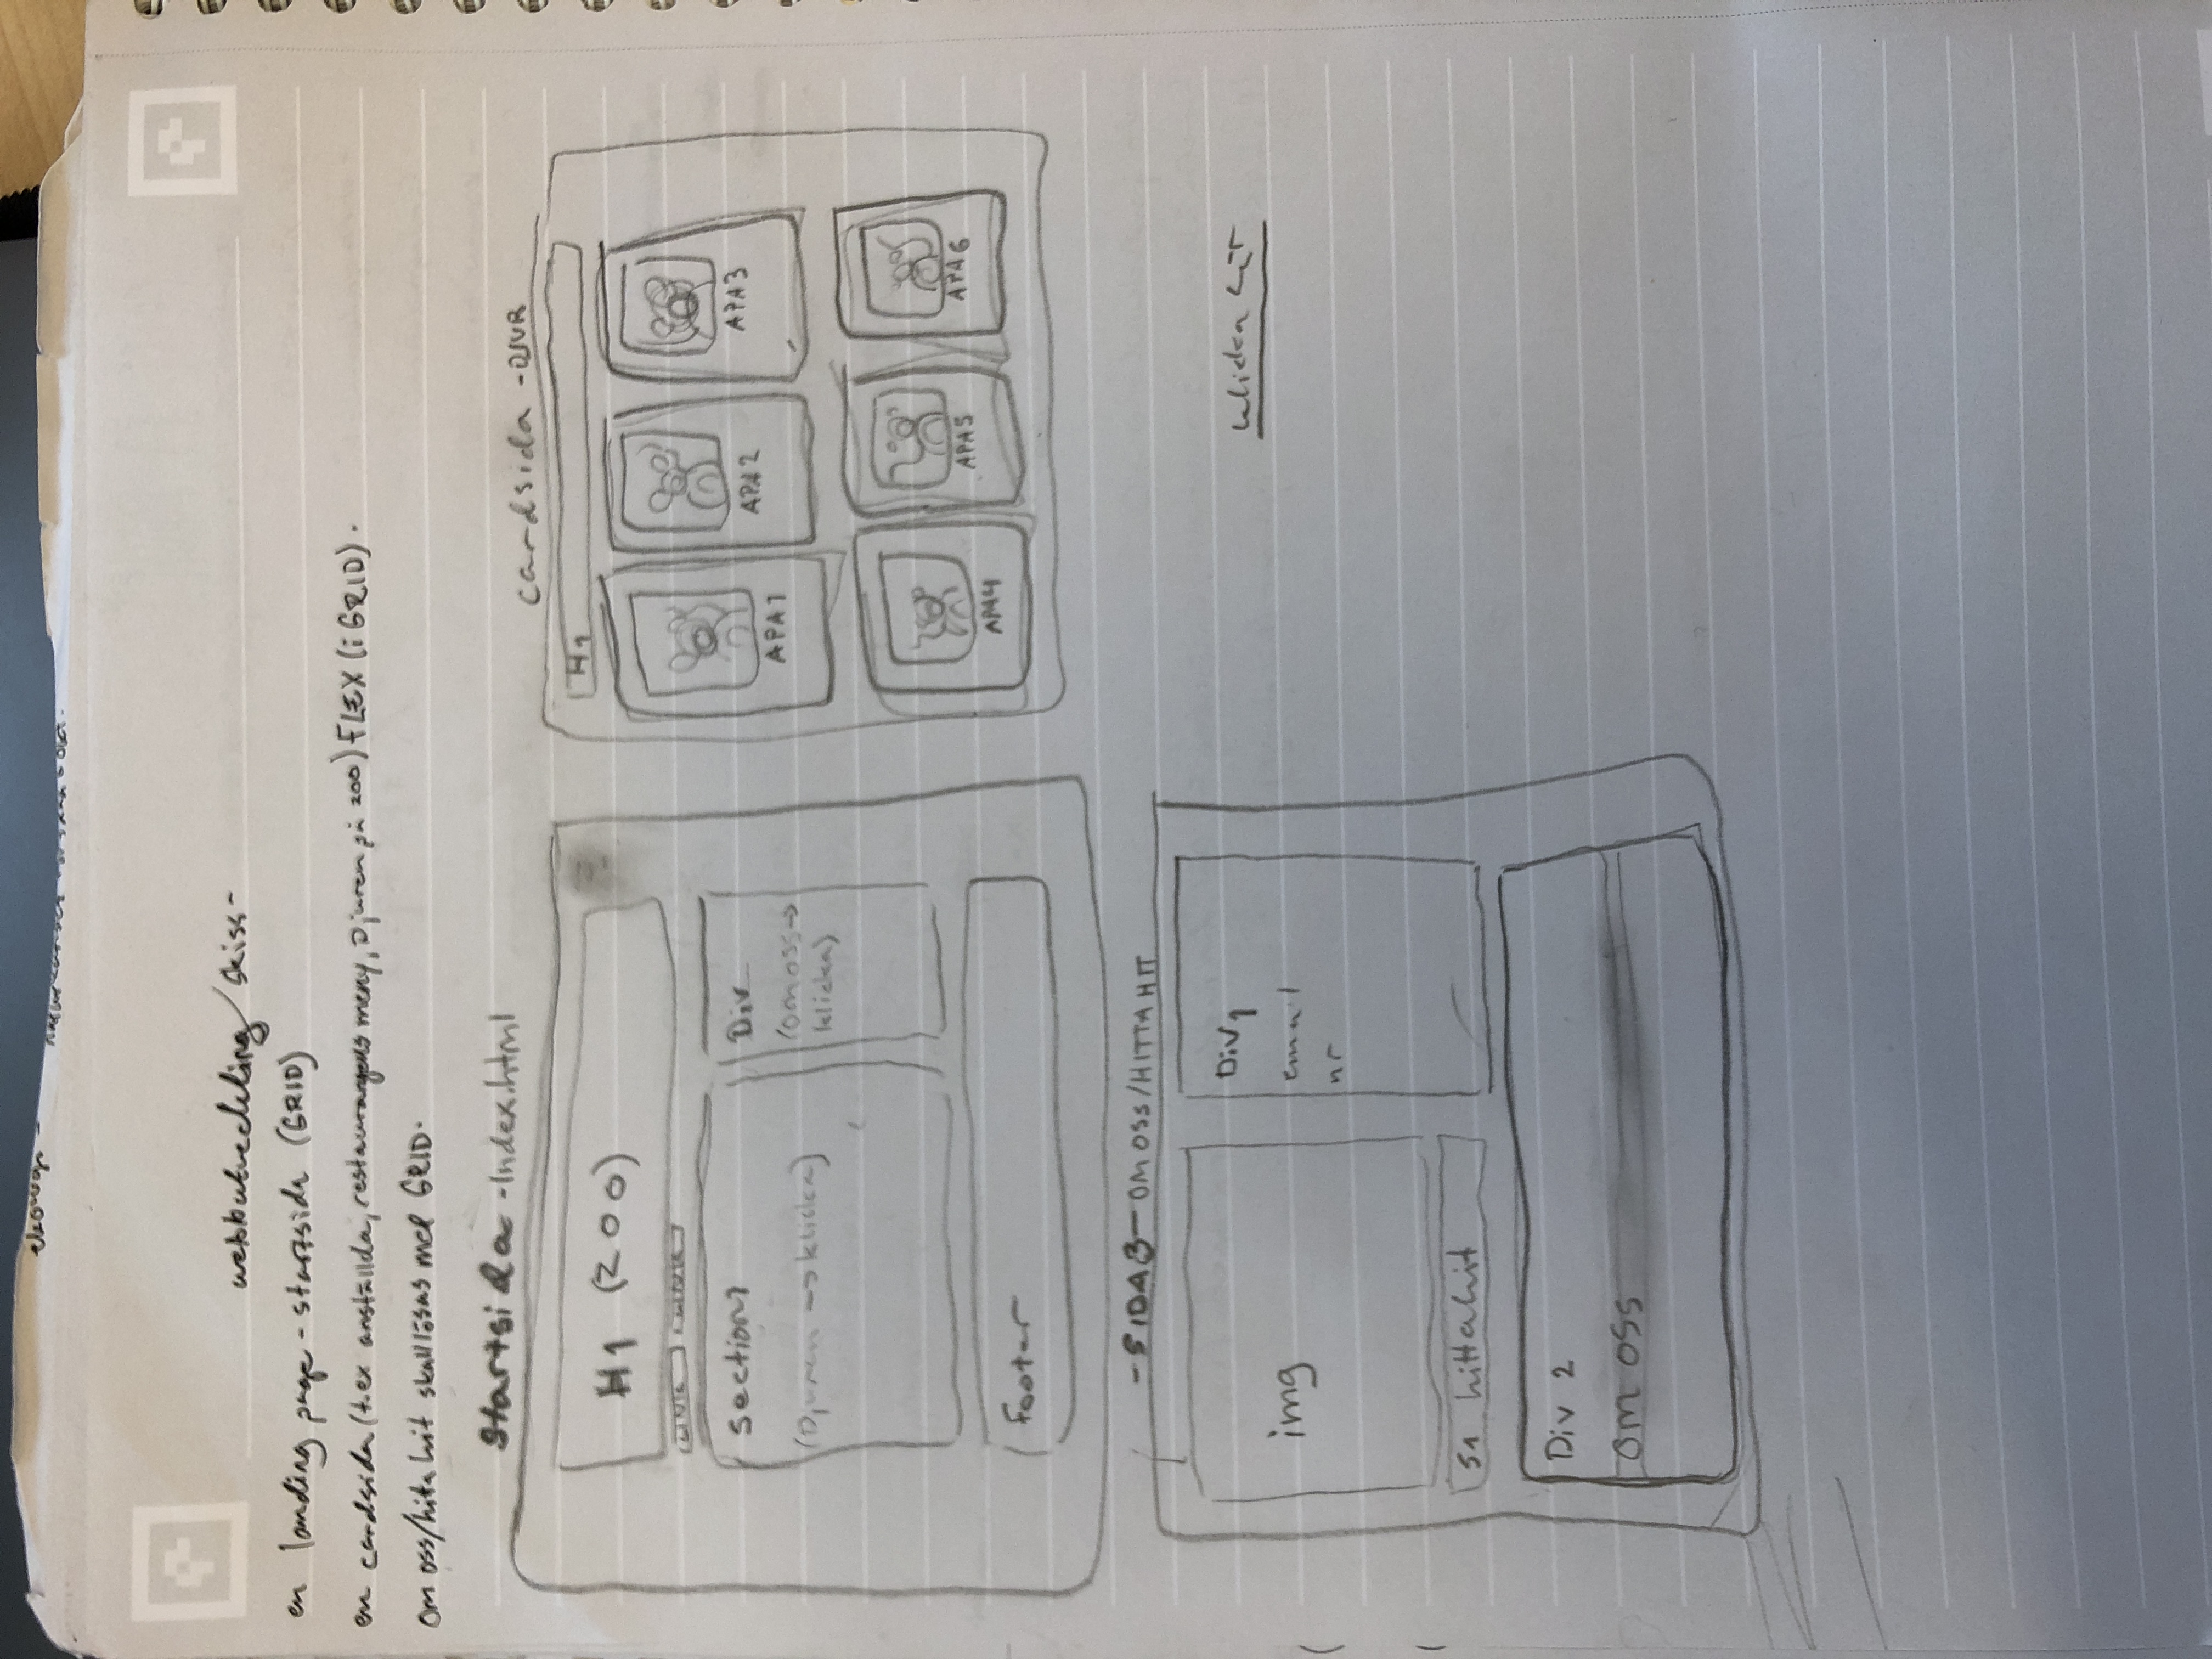 ekologi -
webbutveckling/skiss-
en landing page - startsida (GRID)
en cardsida (t.ex anställda, restaurangens meny, Djuren på zoo) FLEX (i GRID).
om oss/hitta hit skall lösas med GRID.
Startsida -Index.html
H1 (ZOO)
LINK LINK
Section1
(Djuren -> klicka)
Div
(om oss->
klicka)
Footer
cardsida -DJUR
H1
APA1
APA2
APA3
APA4
APA5
APA6
-SIDA3- OM OSS/HITTA HIT
img
S1 hitta hit
Div1
email
nr
Div 2
om oss
klicka här